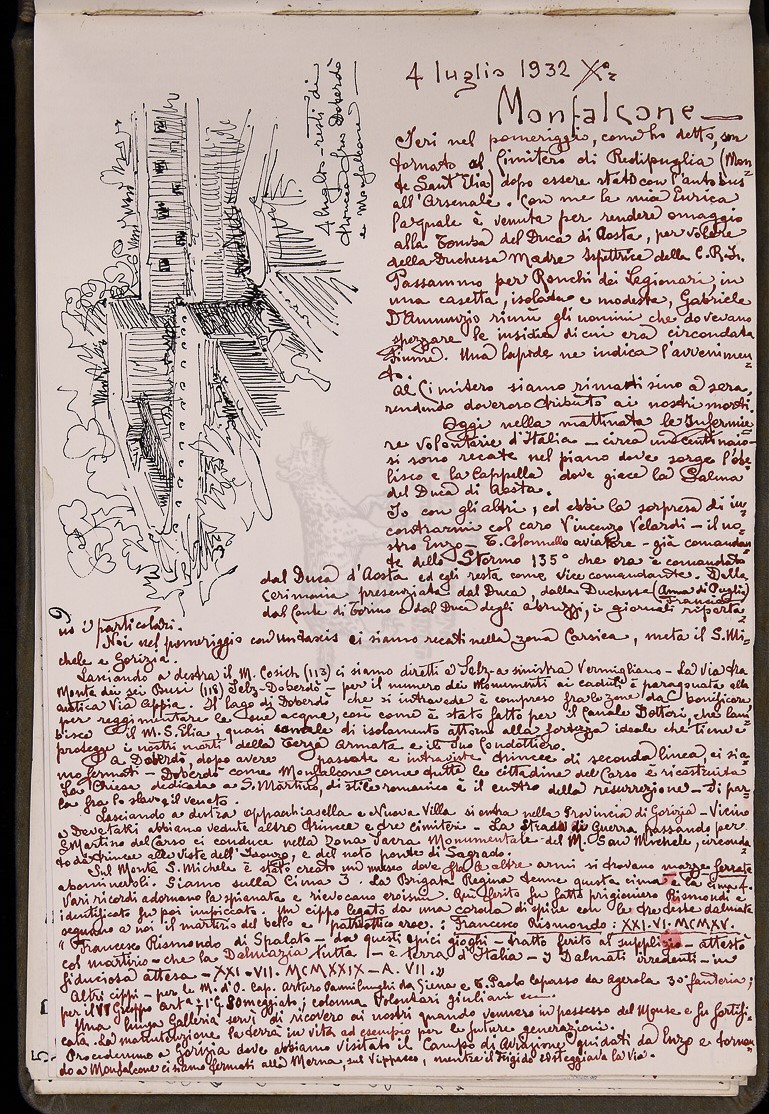 4 luglio 1932 Xº
Monfalcone
4 luglio - resti di
trincea fra Doberdò
e Monfalcone
Ieri nel pomeriggio, come ho detto, son
tornato al Cimitero di Redipuglia (Mon=
te Sant'Elia) dopo essere stato con l'autobus
all'Arsenale. Con me la mia Enrica
la quale è venuta per rendere omaggio
alla Tomba del Duca di Aosta, per volere
della Duchessa Madre Ispettrice della C.R.I.
Passammo per Ronchi dei Legionari, in
una casetta, isolata e modesta, Gabriele
D'Annunzio riunì gli uomini che dovevano
spezzare le insidie di cui era circondata
Fiume. Una lapide ne indica l'avvenimen=
to.
Al Cimitero siamo rimasti sino a sera,
rendendo doveroso tributo ai nostri morti.
Oggi nella mattinata le Infermie=
re Volontarie d'Italia - circa un centinaio -
si sono recate nel piano dove sorge l'obe=
lisco e la Cappella dove giace la Salma
del Duca di Aosta.
Io con gli altri, ed ebbi la sorpresa di in=
contrarmi col caro Vincenzo Velardi - il no=
stro Enzo - T. Colonnello aviatore - già comandan=
te dello Stormo 135º che ora è comandato
dal Duca d'Aosta ed egli resta come vice comandante. Della
cerimonia presenziata dal Duca, dalla Duchessa (Anna di Puglia)
Francia
dal Conte di Torino e dal Duca degli Abruzzi, i giornali riporta=
no i particolari.
Noi nel pomeriggio con un taxis ci siamo recati nella zona Carsica, meta il S. Mi=
chele e Gorizia.
Lasciando a destra il M. Cosich (113) ci siamo diretti a Selz - a sinistra Vermigliano - La via fra
Monte dei sei Busi (118) Selz-Doberdò - per il numero dei Monumenti ai caduti è paragonata alla
antica Via Appia. Il lago di Doberdò che si intravede è compreso fra le zone da bonificare,
per reggimentare le sue acque, così come è stato fatto per il Canale Dottori, che lam=
bisce il M. S. Elia, quasi canale di isolamento attorno alla fortezza ideale che tiene e
protegge i nostri morti della Terza Armata e il suo Condottiero.
A Doberdò, dopo avere passate e intraviste trincee di seconda linea, ci sia=
mo fermati - Doberdò come Monfalcone come tutte le cittadine del Carso è ricostruita
La Chiesa dedicata a S. Martino, di stile romanico è il centro della resurrezione - Si par=
la fra lo slavo e il veneto.
Lasciando a destra Oppacchiasella e Nuova Villa si entra nella Provincia di Gorizia - Vicino
a Devetaki abbiamo vedute altre trincee e tre cimiteri - La strada di Guerra passando per
S. Martino del Carso ci conduce nella Zona Sacra Monumentale del M. San Michele, circonda=
to di trincee alle viste dell'Isonzo, e del noto ponte di Sagrado.
Sul Monte S. Michele è stato creato un museo dove fra le altre armi si trovano mazze ferrate
abominevoli. Siamo sulla Cima 3. La Brigata Regina tenne questa cima e la cima 4.
Vari ricordi adornano la spianata e rievocano eroismi. Qui ferito fu fatto prigioniero Rismondi e
identificato fu poi impiccato. Un cippo legato da una corona di spine con le tre teste dalmate
segnano a noi il martirio del bello e patriottico eroe: Francesco Rismondo: XXI.VI.MCMXV.
"Francesco Rismondo di Spalato - da questi epici gioghi - tratto ferito al supplizio - attestò
col martirio - che la Dalmazia tutta - è terra d'Italia - I Dalmati irredenti - in
fiduciosa attesa - XXI-VII-MCMXXIX-A. VII."
Altri cippi - per le M. d'O. Cap. Arturo Pamilunghi da Siena e T. Paolo Capasso da Agerola 30º fanteria;
per il VI Gruppo Artª; colonna Volontari giuliani ecc.
Una lunga Galleria servì di ricovero ai nostri quando vennero in possesso del Monte e fu fortifi=
cata. La manutenzione la terrà in vita ad esempio per le future generazioni.
Procedemmo a Gorizia dove abbiamo visitato il Campo di Aviazione guidati da Enzo e tornan=
do a Monfalcone ci siamo fermati alla Merna, sul Vippacco, mentre il Frigido costeggiava la Via.